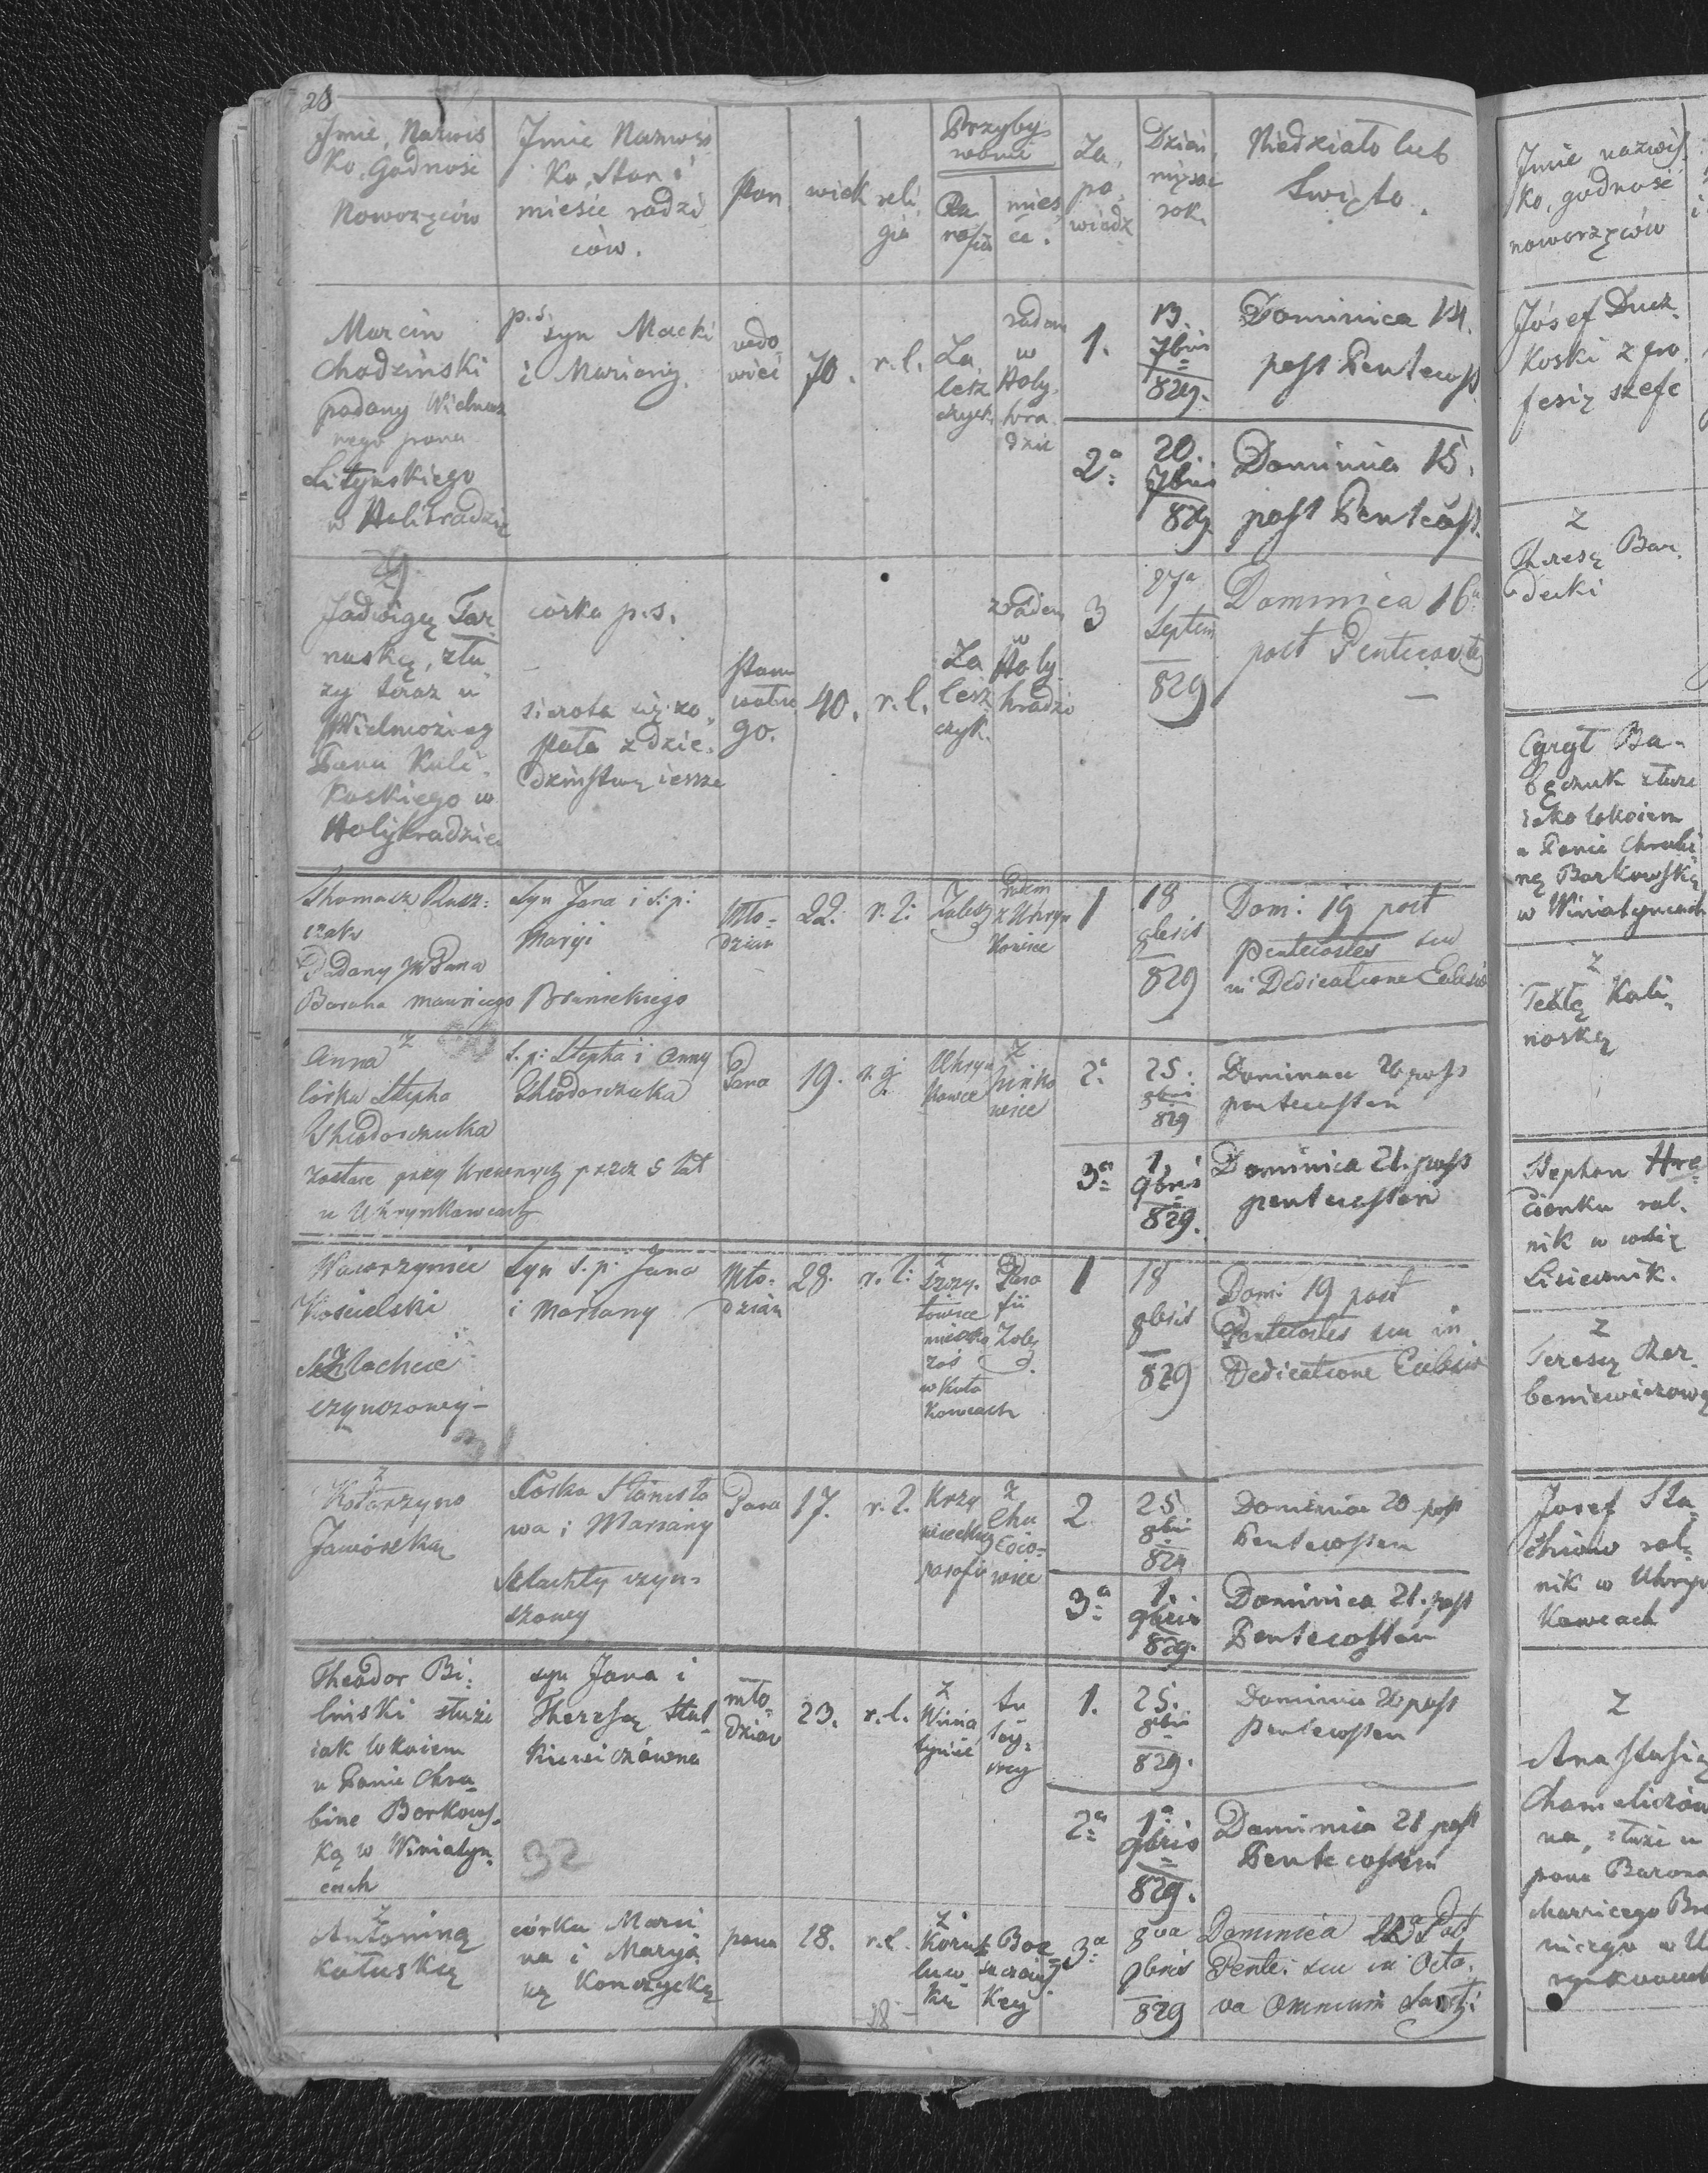 28
Jmie, Nazwis
ko, Godność
Noworzęców
Jmie Nazwis
ko, Stan i
miesce rodzi
ców.
stan
wiek
reli
gia
Przyby
wanie
Pa
rafia
mies
ce.
Za
po
wiedz
Dzień,
miesąc
rok.
Niedziało lub
Święto.
Marcin
Chodzinski
podany Wielmoż
nego pana
Lityńskiego
w Holihradzie
p.s.
syn Macki
i Mariany.
wdo
wiec
70.
r. l.
Za
lesz
czyk.
rodem
w
Holy
hra
dzie
1.
13.
7bris
829.
Dominica 14.
post Pentecost
2a
20.
7bris
829.
Dominica 15.
post Pentecost.
Z
Jadwigę Tar
naskę, słu
zy teraz u
Wielmoznego
Pana Kali
koskiego w
Holyhradzie
córka p.s.
sierota zo
stała z dzie
dzinstwa ieszcze
stanu
wolne
go.
40.
r. l.
Za
lesz
czyk.
rodem
w
Holy
hradzie
3
27a
Septem
829
Dominica 16a
post Pentecoste
Thomasz Rusz
czak
Podany JW Pana
Barana Mauricego Brunickiego
Syn Jana i s.p.
Maryi
Mło-
dzian
22.
r. l:
Zalesz
rodem
z Uhryn
kowiec
1
18
8bris
829
Dom: 19 post
Pentecostes seu
in Dedicatione Eclesie
z
Anna
córka Stepha
Theodorczuka
zostaie przy krewnych przez 5 lat
u Uhrynkowcach
s.p: Stepha i Anny
Theodorczuka
Pana
19.
r. g.
Uhryn
kowce
z
Sinko
wiec
2a
25.
8bris
829
Dominica 20 post
pentecosten
3a
1.
9bris
829.
Dominica 21. post
pentecosten
Wawrzyniec
Koscielski
Szlachcic
czynszowy-
Syn s.p. Jana
i Mariany
Mło-
dzian
28.
r. l:
z
Szczy-
towiec
mieszka
zaś
w Kuła
kowcach
Para
fii
Zalesz
1
18
8bris
829
Domi 19 post
Pentecostes seu in
Dedicatione Eclesie
z
Katarzyno
Jaworską
Córka Stanisła
wa i Mariany
Szlachty czyn-
szowey
Pana
17.
r. l.
Krzy
wieckiej
parafii
z
Chu
dijo-
wiec
2.
25.
8bri
829
Dominica 20 post
Pentecosten
3a
1.
9bris
829.
Dominica 21. post
Pentecosten
Theodor Bi
linski służi
iak lokaiem
u Panie Chra
bine Borkows
ką w Winiatyn
cach
syn Jana i
Theresy Stat
kiewiczówna
32
mło
dzian
23.
r. l.
z
Winia
tyniec
tu
tey
szey
1.
25.
8bri
829.
Dominica 20 post
Pentecosten
2a
1a
9bris
829.
Dominica 21 post
Pentecosten
z
Antoniną
Kałuskię
córka Marci
na i Marya
ną Konczycką
pana
18.
r. l.
z
Korni
luw
kę
Bor
szczow
key
3a
8va
9bris
829
Dominica 22 Post
Pente: seu in Octa-
va Omnium Sanct:
Jósef Ducz
koski z pro
fesię szefc
Jmie nazwis
ko, godność
noworzęców
z
Theresę Bar
decki
Cyryl Ba-
beczuk służi
iako lokaiem
u Panie Chrabi
ną Borkowską
w Winiatyncach
z
Teklę Kali
noskę
Stephan Hre
cienku rol-
nik w wsie
Lisiecznik.
z
Teresę Rer
beniewiczową
Josef Sta
chniow rol-
nik w Uhryn
kowcach
z
Anastasię
Chomeliczów
na, służi u
pana Barona
Mauricego Bru
nicego w U
rynkowcach